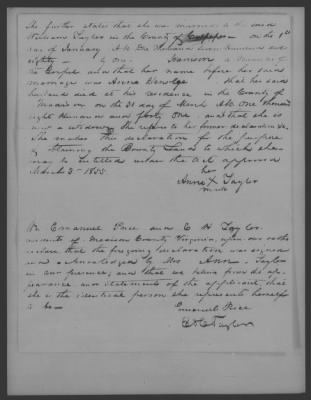 She further states that she was married to the said
William Taylor in the County of Culpeper on the 1st
day of January A.D. One thousand seven hundred and
eighty — by one Garrison a Minister of
the Gospel and that her name before her said
marriage was Anna that her said
husband died at his residence in the County of
Madison on the 31 day of March A.D. One thousand
eight hundred and forty one, and that she is
now a widow. She refers to her former declaration &c.
She makes this declaration for the purpose
of obtaining the Bounty Land to which she
may be entitled under the act approved
March 3d 1855.
her
Anna X Taylor
mark
We Emanuel Price and E H Taylor
residents of Madison County Virginia, upon our oaths
declare that the foregoing declaration was signed
and acknowledged by Mrs Ann Taylor
in our presence, and that we believe from the ap-
pearance and statements of the applicant that
she is the identical person she represents herself
to be —
Emanuel Price
E H Taylor